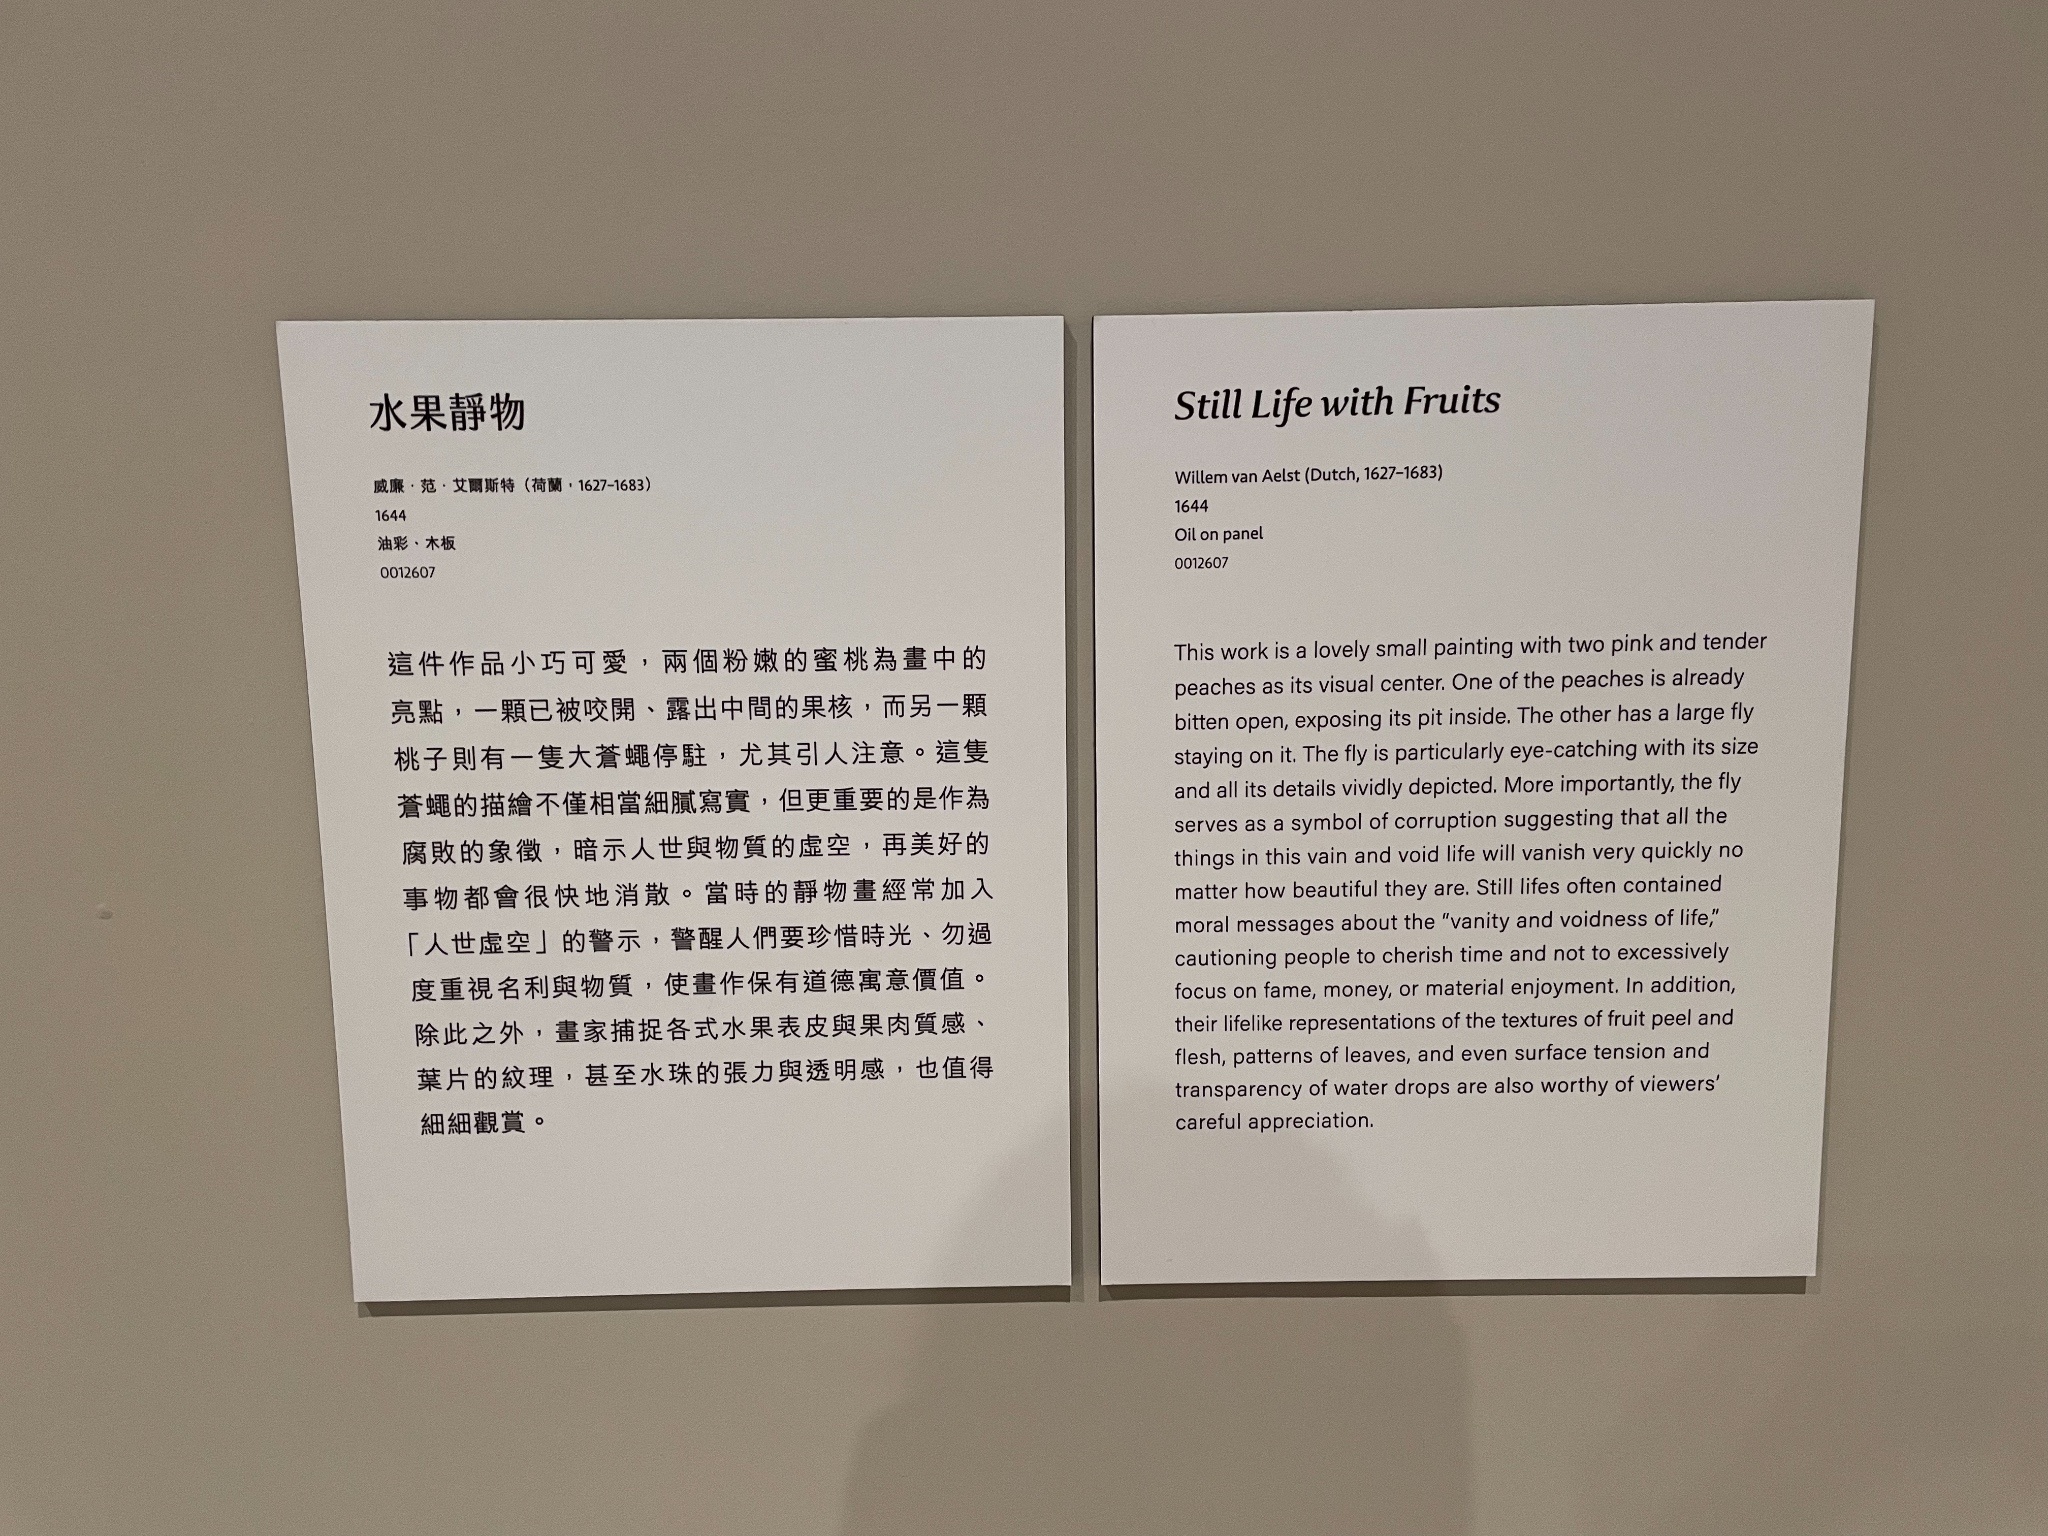 水果靜物
威廉．范．艾爾斯特（荷蘭，1627–1683）
1644
油彩、木板
0012607
這件作品小巧可愛，兩個粉嫩的蜜桃為畫中的
亮點，一顆已被咬開、露出中間的果核，而另一顆
桃子則有一隻大蒼蠅停駐，尤其引人注意。這隻
蒼蠅的描繪不僅相當細膩寫實，但更重要的是作為
腐敗的象徵，暗示人世與物質的虛空，再美好的
事物都會很快地消散。當時的靜物畫經常加入
「人世虛空」的警示，警醒人們要珍惜時光、勿過
度重視名利與物質，使畫作保有道德寓意價值。
除此之外，畫家捕捉各式水果表皮與果肉質感、
葉片的紋理，甚至水珠的張力與透明感，也值得
細細觀賞。
Still Life with Fruits
Willem van Aelst (Dutch, 1627–1683)
1644
Oil on panel
0012607
This work is a lovely small painting with two pink and tender
peaches as its visual center. One of the peaches is already
bitten open, exposing its pit inside. The other has a large fly
staying on it. The fly is particularly eye-catching with its size
and all its details vividly depicted. More importantly, the fly
serves as a symbol of corruption suggesting that all the
things in this vain and void life will vanish very quickly no
matter how beautiful they are. Still lifes often contained
moral messages about the “vanity and voidness of life,”
cautioning people to cherish time and not to excessively
focus on fame, money, or material enjoyment. In addition,
their lifelike representations of the textures of fruit peel and
flesh, patterns of leaves, and even surface tension and
transparency of water drops are also worthy of viewers’
careful appreciation.